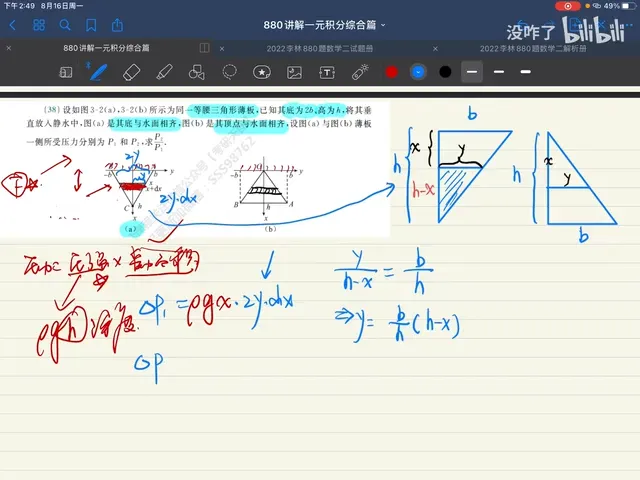 下午2:49 8月16日周二
880讲解一元积分综合篇
49%
没咋了 bilibili
880讲解一元积分综合篇
2022李林880题数学二试题册
2022李林880题数学二解析册
(38) 设如图 3-2(a),3-2(b)所示为同一等腰三角形薄板,已知其底为2b,高为h,将其垂
直放入静水中,图(a)是其底与水面相齐,图(b)是其顶点与水面相齐,设图(a)与图(b)薄板
一侧所受压力分别为 P₁ 和 P₂,求P₂/P₁.
2y
-b
b
y
x
x+dx
C
h
x
(a)
2y·dx
-b
b
y
B
h
A
x
(b)
b
x
y
h
h-x
h
x
y
b
压力= 压强×
ρgh 深度
ΔP₁ = ρgx·2y·dx
ΔP
y/(h-x) = b/h
⇒y= b/h (h-x)